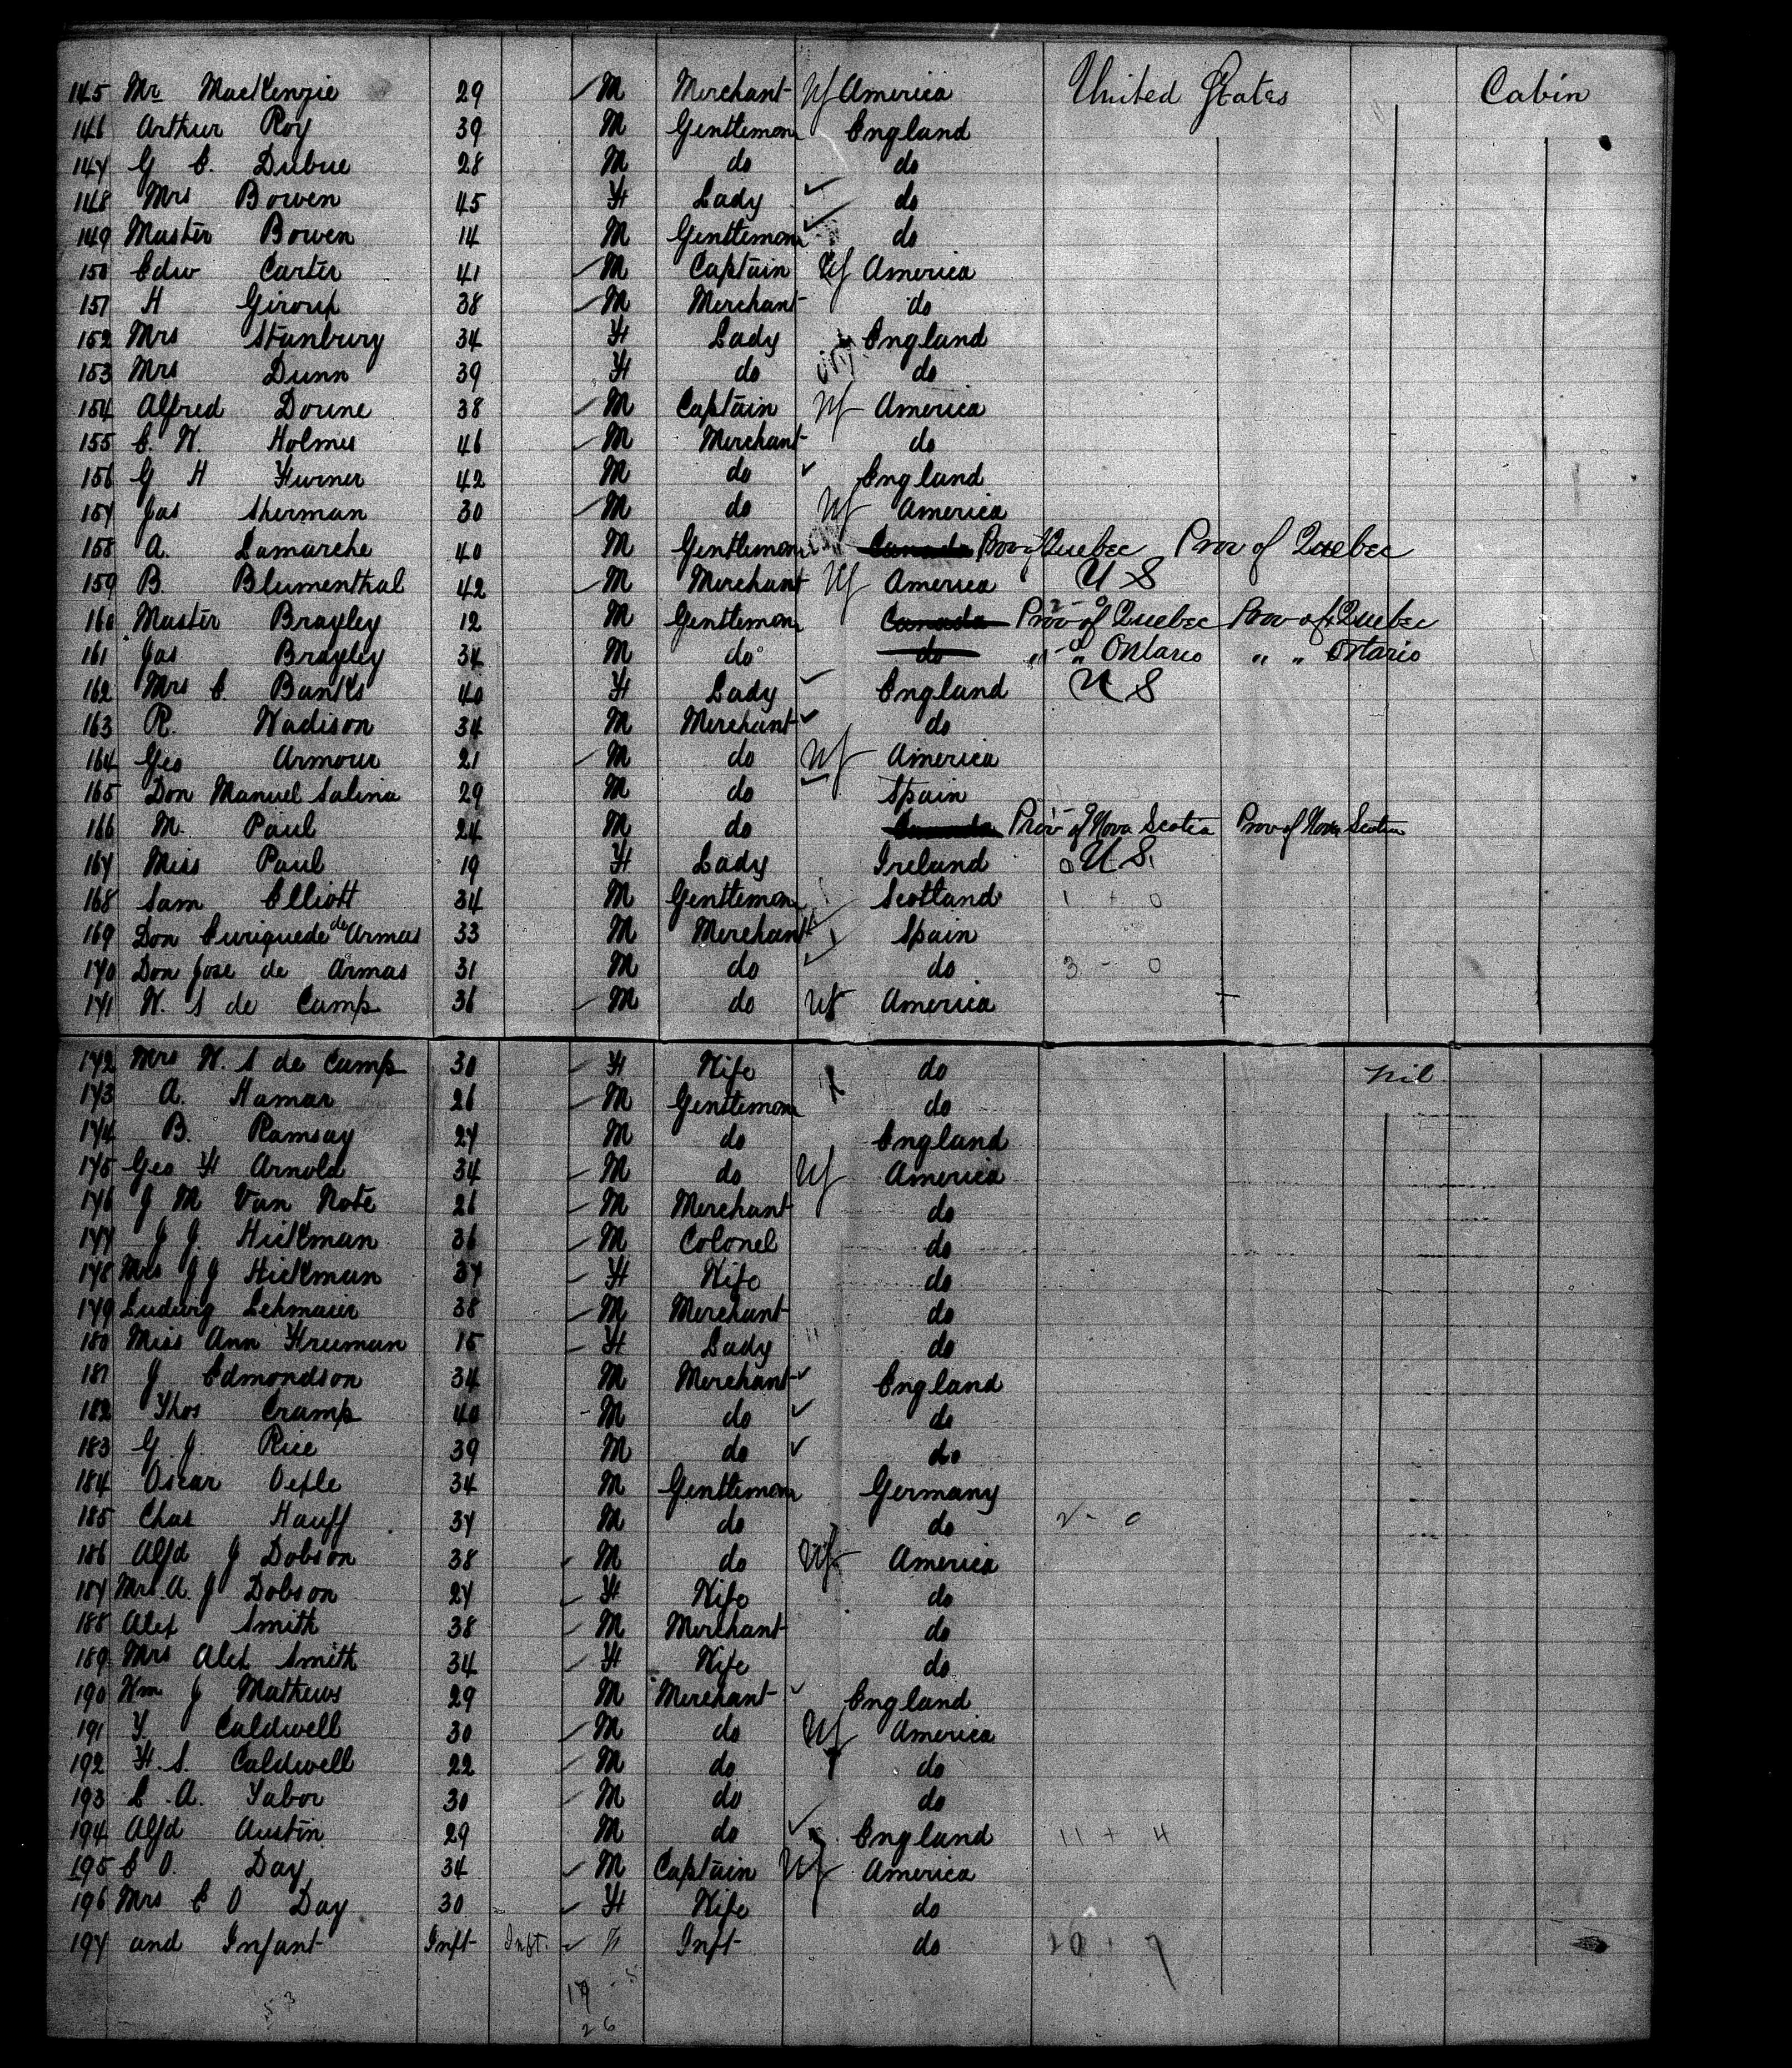 145 Mr MacKenzie 29 M Merchant America United States Cabin
146 Arthur Roy 39 M Gentleman England
147 G C. Dubue 28 M do do
148 Mrs Bowen 45 F Lady do
149 Master Bowen 14 M Gentleman do
150 Edw Carter 41 M Captain America
151 H Giroux 38 M Merchant do
152 Mrs Stanbury 34 F Lady England
153 Mrs Dunn 39 F do do
154 Alfred Dorine 38 M Captain America
155 C. W. Holmes 46 M Merchant do
156 G H Turner 42 M do England
157 Jas Sherman 30 M do America
158 A. Lamarche 40 M Gentleman Canada Prov of Quebec Prov of Quebec
159 B. Blumenthal 42 M Merchant America U S
160 Master Brayley 12 M Gentleman Canada Prov of Quebec Prov of Quebec
161 Jas Brayley 34 M do do " " Ontario " " Ontario
162 Mrs C Banks 40 F Lady England U S
163 R. Wadison 34 M Merchant do
164 Geo Armour 21 M do America
165 Don Manuel Salina 29 M do Spain
166 M. Paul 24 M do Canada Prov of Nova Scotia Prov of Nova Scotia
167 Miss Paul 19 F Lady Ireland U S.
168 Sam Elliott 34 M Gentleman Scotland 1 + 0
169 Don de Armas 33 M Merchant Spain
170 Don Jose de Armas 31 M do do 3 - 0
171 W. S de Camp 36 M do America
172 Mrs W. S de Camp 30 F Wife do nil
173 A. Hamar 26 M Gentleman do
174 B. Ramsay 27 M do England
175 Geo F Arnold 34 M do America
176 J M Van Note 26 M Merchant do
177 J J. Hickman 36 M Colonel do
178 Mrs J J Hickman 37 F Wife do
179 Ludwig Lehmaier 38 M Merchant do
180 Miss Ann Freeman 15 F Lady do
181 J Edmondson 34 M Merchant England
182 Thos Cramp 40 M do do
183 G. J. Rice 39 M do do
184 Oscar 34 M Gentleman Germany
185 Chas Hauff 37 M do do 2 - 0
186 Alfd J Dobson 38 M do America
187 Mrs. A. J Dobson 27 F Wife do
188 Alex Smith 38 M Merchant do
189 Mrs Alex Smith 34 F Wife do
190 Wm J Mathews 29 M Merchant England
191 T Caldwell 30 M do America
192 F. S. Caldwell 22 M do do
193 C. A. Tabor 30 M do do
194 Alfd Austin 29 M do England 11 + 4
195 C O. Day 34 M Captain America
196 Mrs C O Day 30 F Wife do
197 and Infant Inft Inft. Inft do
53
26